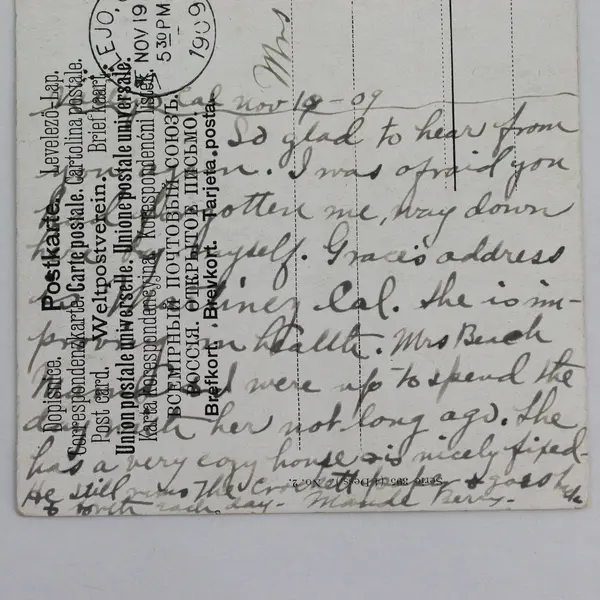 EJO,
NOV 19
5 30 PM
1909
Mrs
Cal nov 19 - 09
So glad to hear from
you again. I was afraid you
had forgotten me, way down
here by myself. Grace's address
is Martinez Cal. She is im-
proving in health. Mrs Beach
and were up to spend the
day with her not long ago. She
has a very cozy house & is nicely fixed.
He still runs The Crockett paper & goes back
& forth each day. Maude Berry.
Postkarte. Levelező-Lap.
Dopisnice. Correspondenzkarte. Carte postale. Cartolina postale.
Post card. Weltpostverein. Brief kaart.
Union postale universelle. Unione postale universale.
Karta korespondencyjna. Korespondenční lístek.
ВСЕМІРНЫЙ ПОЧТОВЫЙ СОЮЗЪ.
РОССІЯ. ОТКРЫТОЕ ПИСЬМО.
Brefkort. Brevkort. Tarjeta postal.
Serie